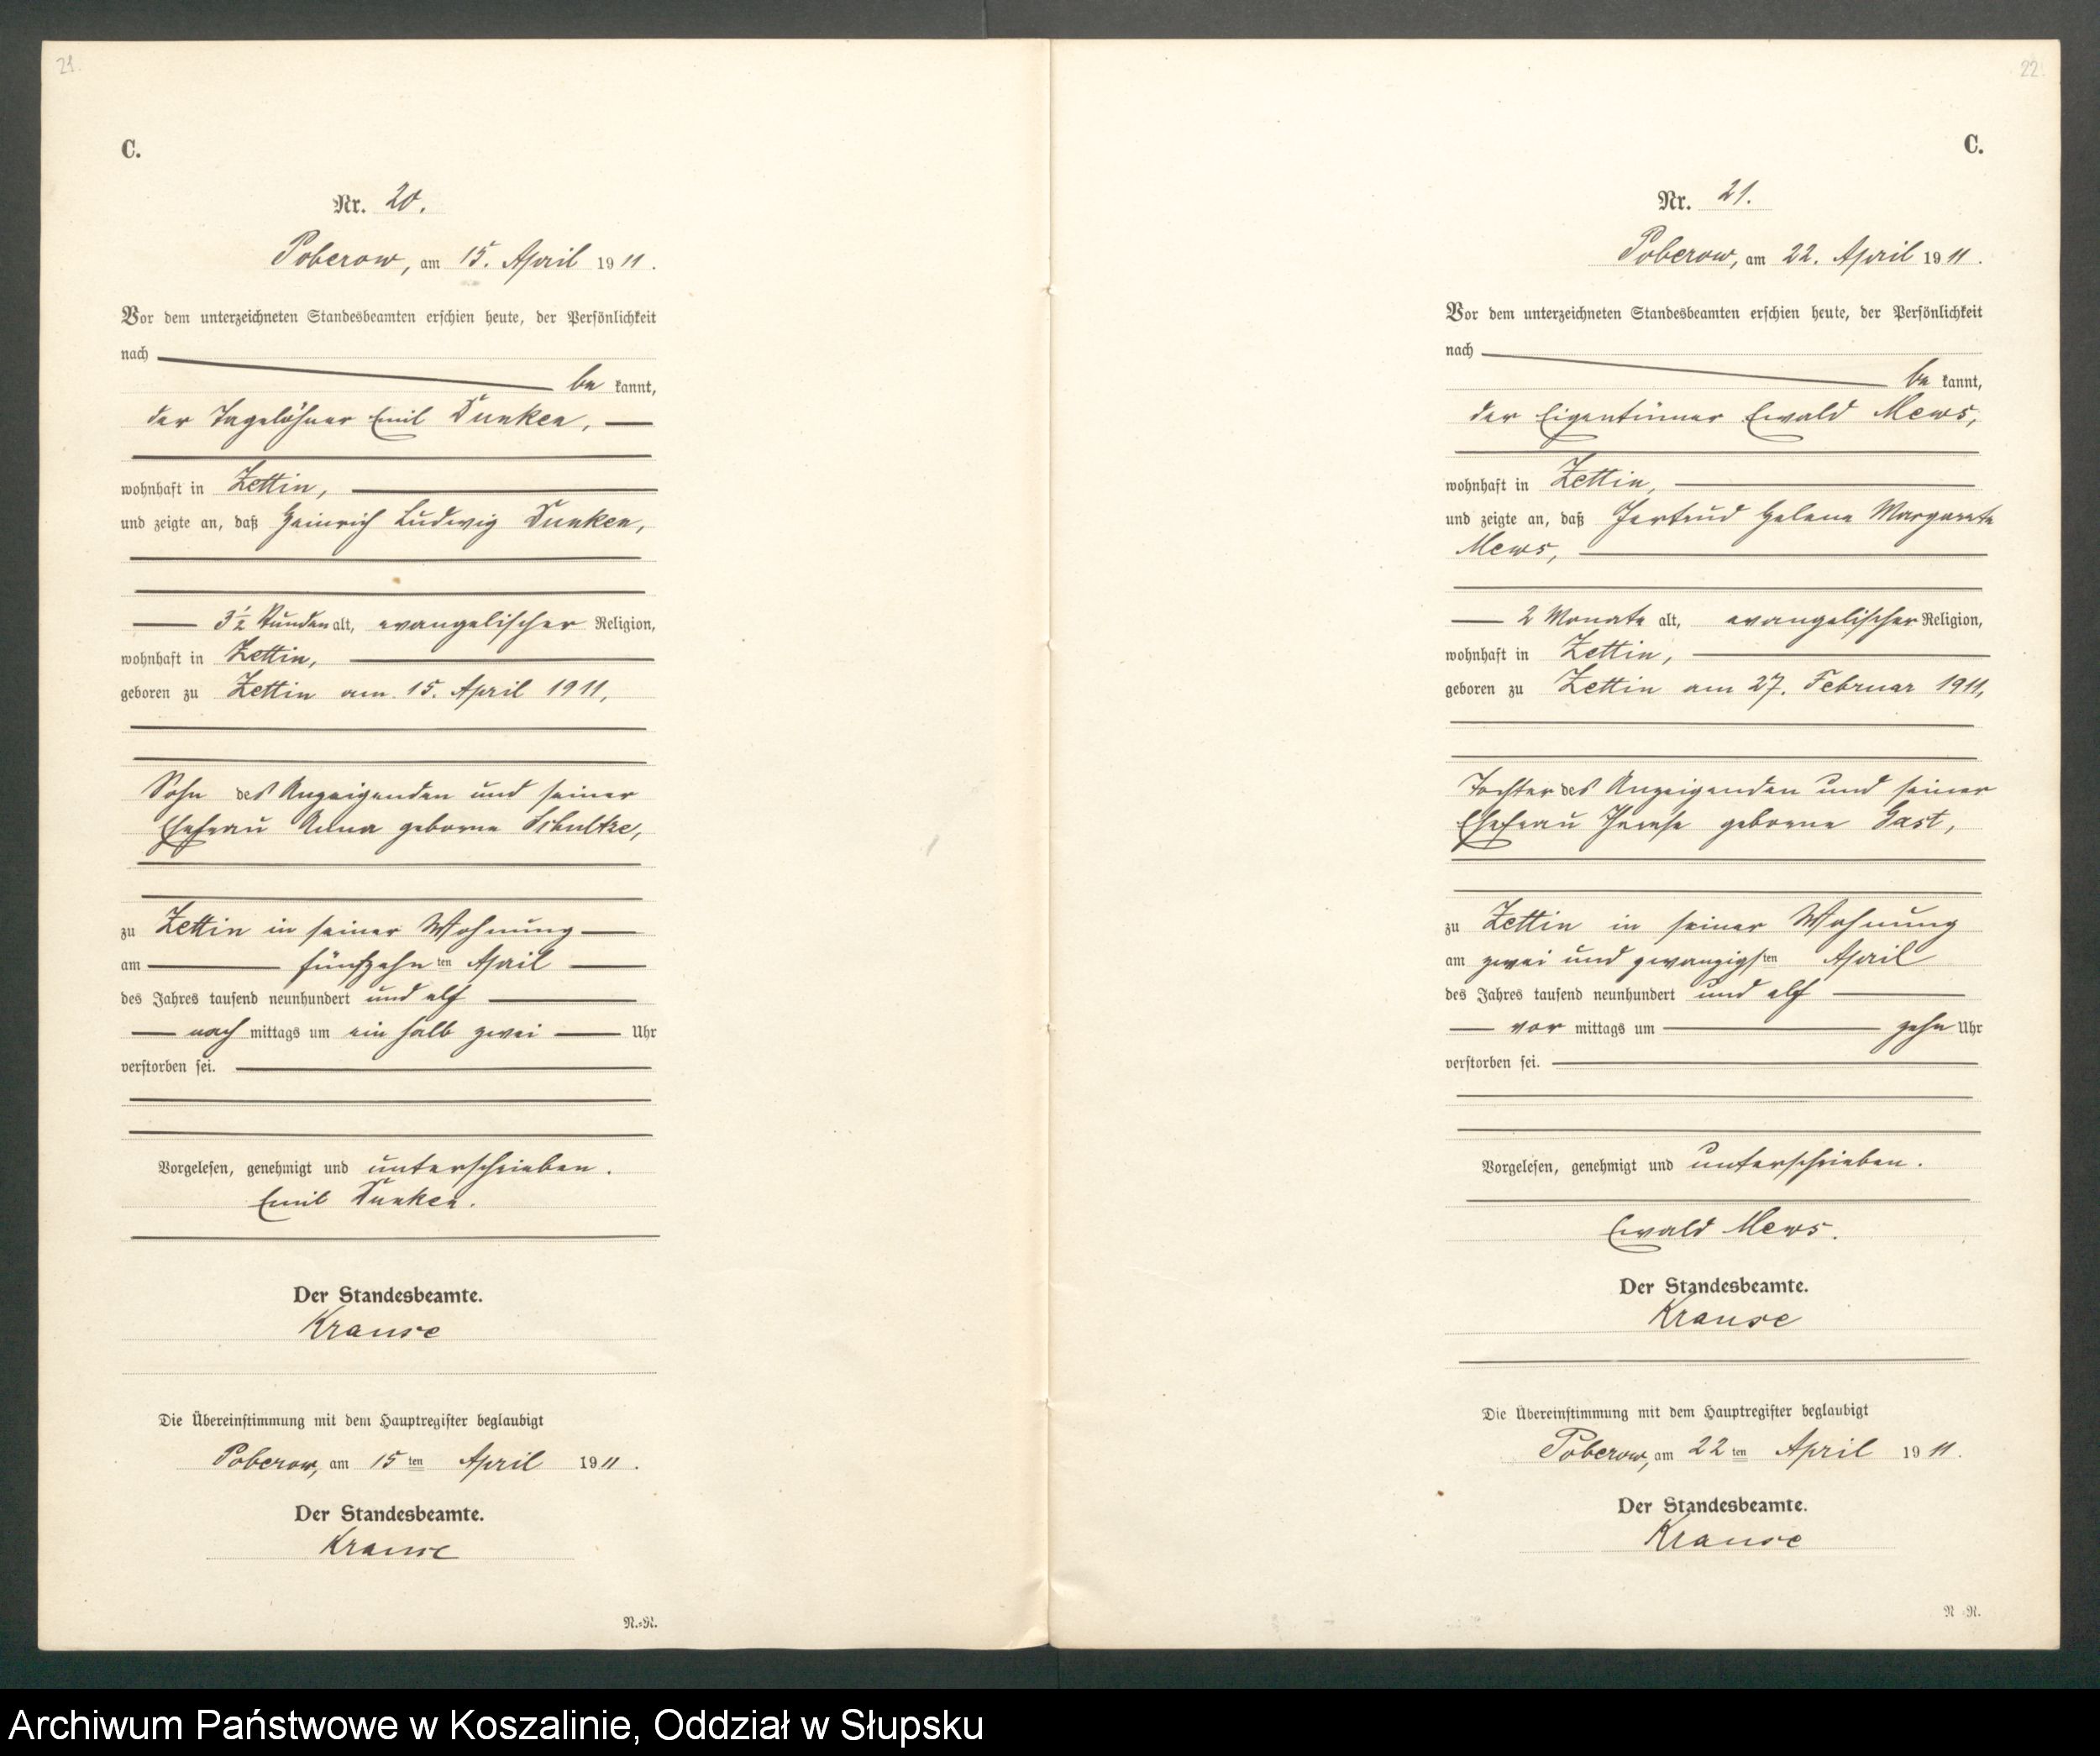 21.
C.
Nr. 20.
Poberow, am 15. April 1911.
Vor dem unterzeichneten Standesbeamten erschien heute, der Persönlichkeit
nach
be kannt,
der Tagelöhner Emil Dunken,
wohnhaft in Zettin,
und zeigte an, daß Heinrich Ludwig Dunken,
3½ Stunden alt, evangelischer Religion,
wohnhaft in Zettin,
geboren zu Zettin am 15. April 1911,
Sohn des Anzeigenden und seiner
Ehefrau Anna geborne Schultze,
zu Zettin in seiner Wohnung
am fünfzehn ten April
des Jahres tausend neunhundert und elf
nach mittags um ein halb zwei Uhr
verstorben sei.
Vorgelesen, genehmigt und unterschrieben.
Emil Dunken.
Der Standesbeamte.
Krause
Die Übereinstimmung mit dem Hauptregister beglaubigt
Poberow, am 15 ten April 1911.
Der Standesbeamte.
Krause
N.=N.
22.
C.
Nr. 21.
Poberow, am 22. April 1911.
Vor dem unterzeichneten Standesbeamten erschien heute, der Persönlichkeit
nach
be kannt,
der Eigentümer Ewald Mews,
wohnhaft in Zettin,
und zeigte an, daß Gertrud Helene Margarete
Mews,
2 Monate alt, evangelischer Religion,
wohnhaft in Zettin,
geboren zu Zettin am 27. Februar 1911,
Tochter des Anzeigenden und seiner
Ehefrau geborne Gast,
zu Zettin in seiner Wohnung
am zwei und zwanzigsten April
des Jahres tausend neunhundert und elf
vor mittags um zehn Uhr
verstorben sei.
Vorgelesen, genehmigt und unterschrieben.
Ewald Mews.
Der Standesbeamte.
Krause
Die Übereinstimmung mit dem Hauptregister beglaubigt
Poberow, am 22 ten April 1911.
Der Standesbeamte.
Krause
N.=N.
Archiwum Państwowe w Koszalinie, Oddział w Słupsku